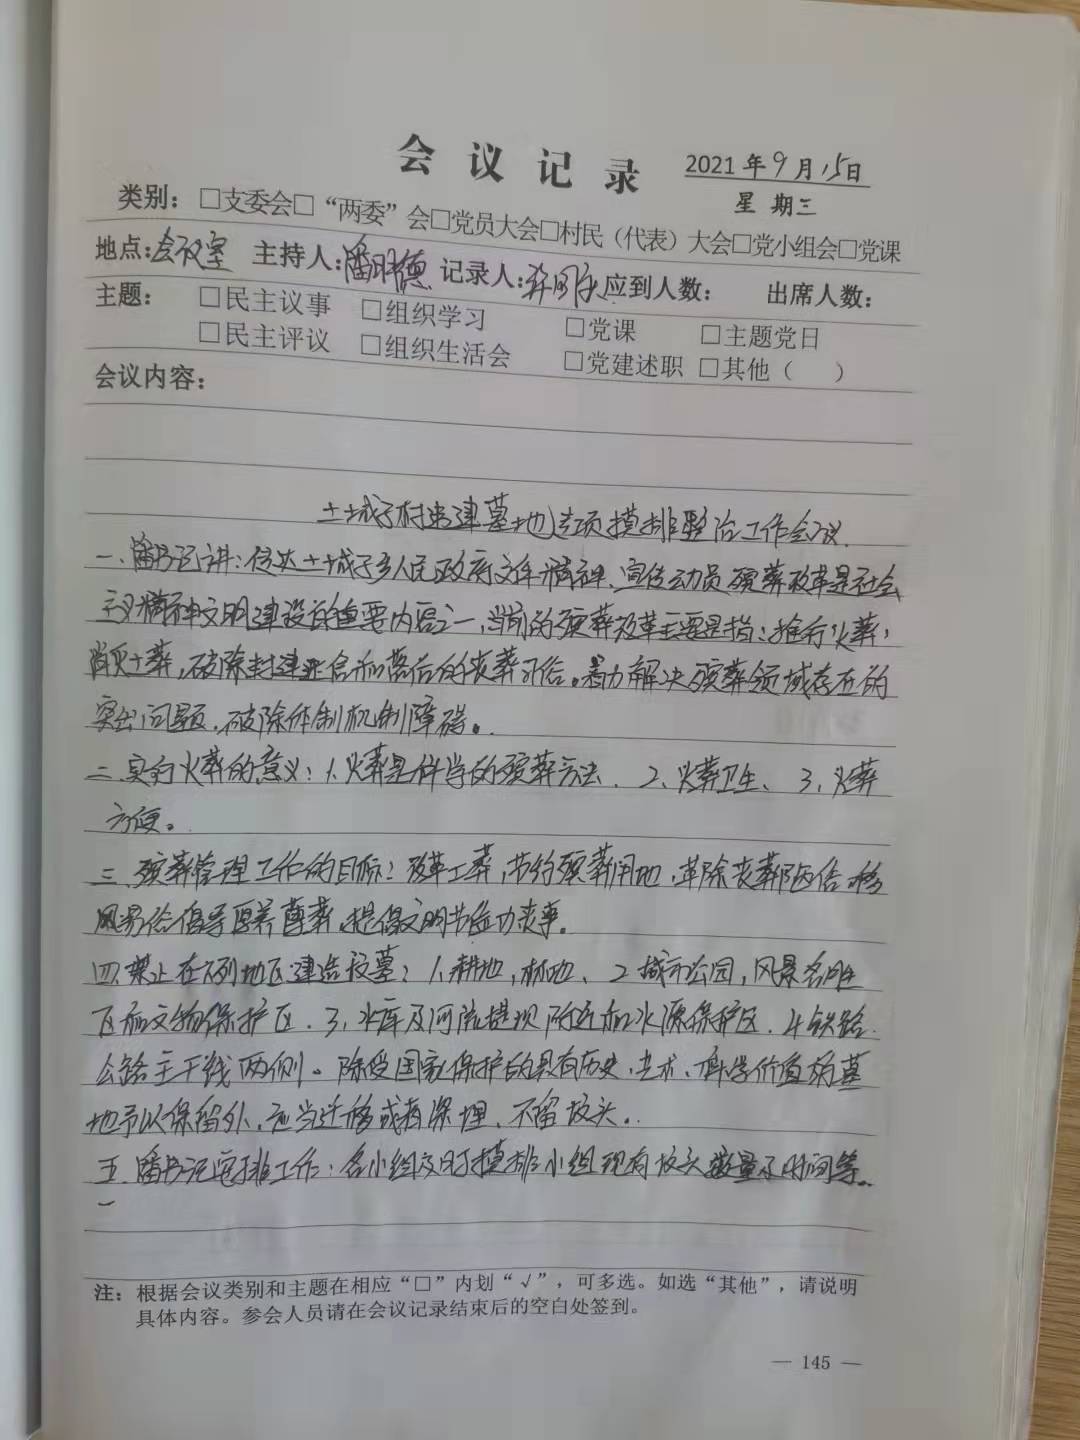 会议记录 2021年9月15日
星期三
类别：□支委会□“两委”会□党员大会□村民（代表）大会□党小组会□党课
地点：会议室 主持人：潘明德 记录人： 应到人数： 出席人数：
主题： □民主议事 □组织学习 □党课 □主题党日
□民主评议 □组织生活会 □党建述职 □其他（ ）
会议内容：
土城子村 建墓地专项摸排整治工作会议
一、潘书记讲：传达土城子乡人民政府文件精神、宣传动员殡葬改革是社会
主义精神文明建设的重要内容之一，当前的殡葬改革主要是指：推行火葬，
消灭土葬，破除封建迷信和落后的丧葬习俗。着力解决殡葬领域存在的
突出问题，破除体制机制障碍。
二、实行火葬的意义：1、火葬是科学的殡葬方法、2、火葬卫生、3、火葬
方便。
三、殡葬管理工作的目标：改革土葬，节约殡葬用地，革除丧葬陋俗 移
风易俗倡导厚养薄葬，提倡文明节俭办丧事。
四、禁止在下列地区建造坟墓：1、耕地，林地、2、城市公园，风景名胜
区和文物保护区、3、水库及河流堤坝附近和水源保护区、4、铁路、
公路主干线两侧。除受国家保护的具有历史、艺术、科学价值的墓
地予以保留外，应当迁移或者深埋，不留坟头。
五、潘书记安排工作：各小组及时摸排小组现有坟头数量及时间等。
注：根据会议类别和主题在相应“□”内划“√”，可多选。如选“其他”，请说明
具体内容。参会人员请在会议记录结束后的空白处签到。
— 145 —